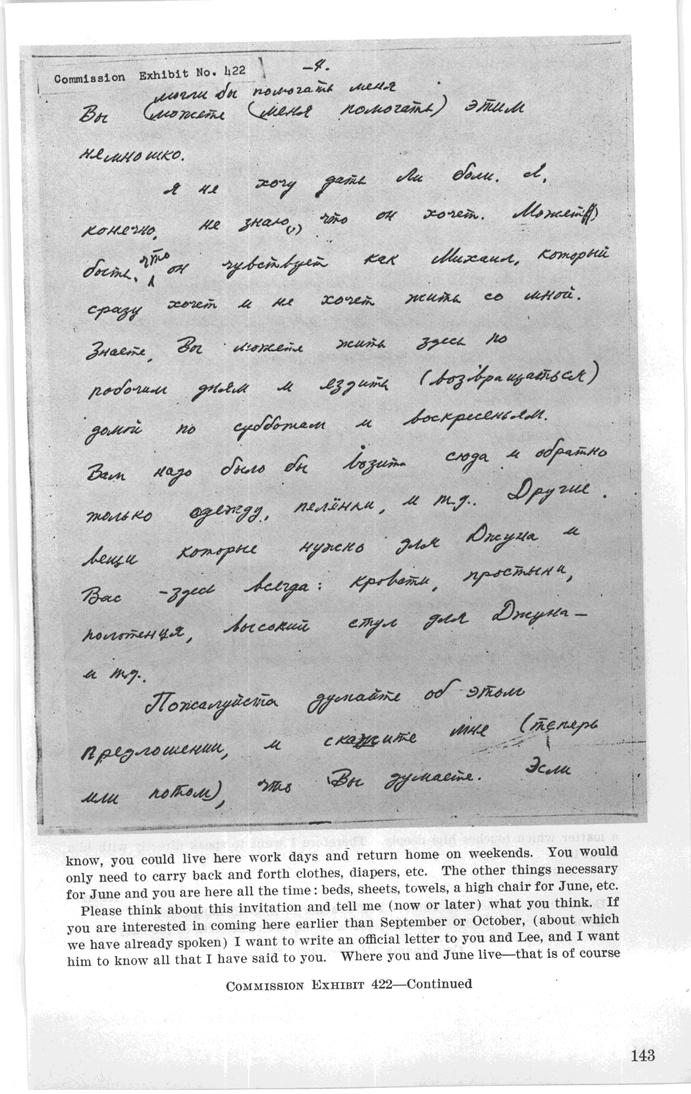 Commission Exhibit No. 422
-4.
могли бы помогать меня
Вы (можете (меня помогать) этим
немношко.
Я не хочу дать Ли боли. Я,
конечно, не знаю(,) что он хочет. Может(,)
быть, что он чувствует как Михаил, который
сразу хочет и не хочет жить со мной.
Знаете, Вы можете жить здесь по
робочим дням и ездить (возвращаться)
домой по субботам и воскресеньям.
Вам надо было бы возить сюда и обратно
только одежду, пелёнки, и т.д.. Другие
вещи которые нужно для Джуна и
Вас - здесь всегда: кровати, простыни,
полотенця, высокий стул для Джуна -
и т.д..
Пожалуйста думайте об этом
предложении, и скажите мне (теперь
или потом), что Вы думаете. Эсли
know, you could live here work days and return home on weekends. You would
only need to carry back and forth clothes, diapers, etc. The other things necessary
for June and you are here all the time: beds, sheets, towels, a high chair for June, etc.
Please think about this invitation and tell me (now or later) what you think. If
you are interested in coming here earlier than September or October, (about which
we have already spoken) I want to write an official letter to you and Lee, and I want
him to know all that I have said to you. Where you and June live—that is of course
COMMISSION EXHIBIT 422—Continued
143